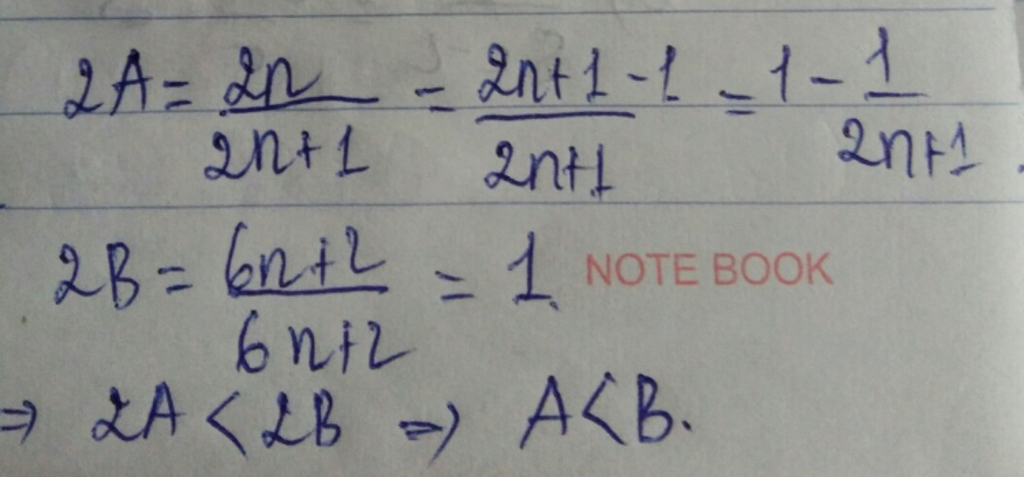 2A = 2n/2n+1 = 2n+1-1/2n+1 = 1 - 1/2n+1.
2B = 6n+2/6n+2 = 1. NOTE BOOK
⇒ 2A < 2B ⇒ A < B.